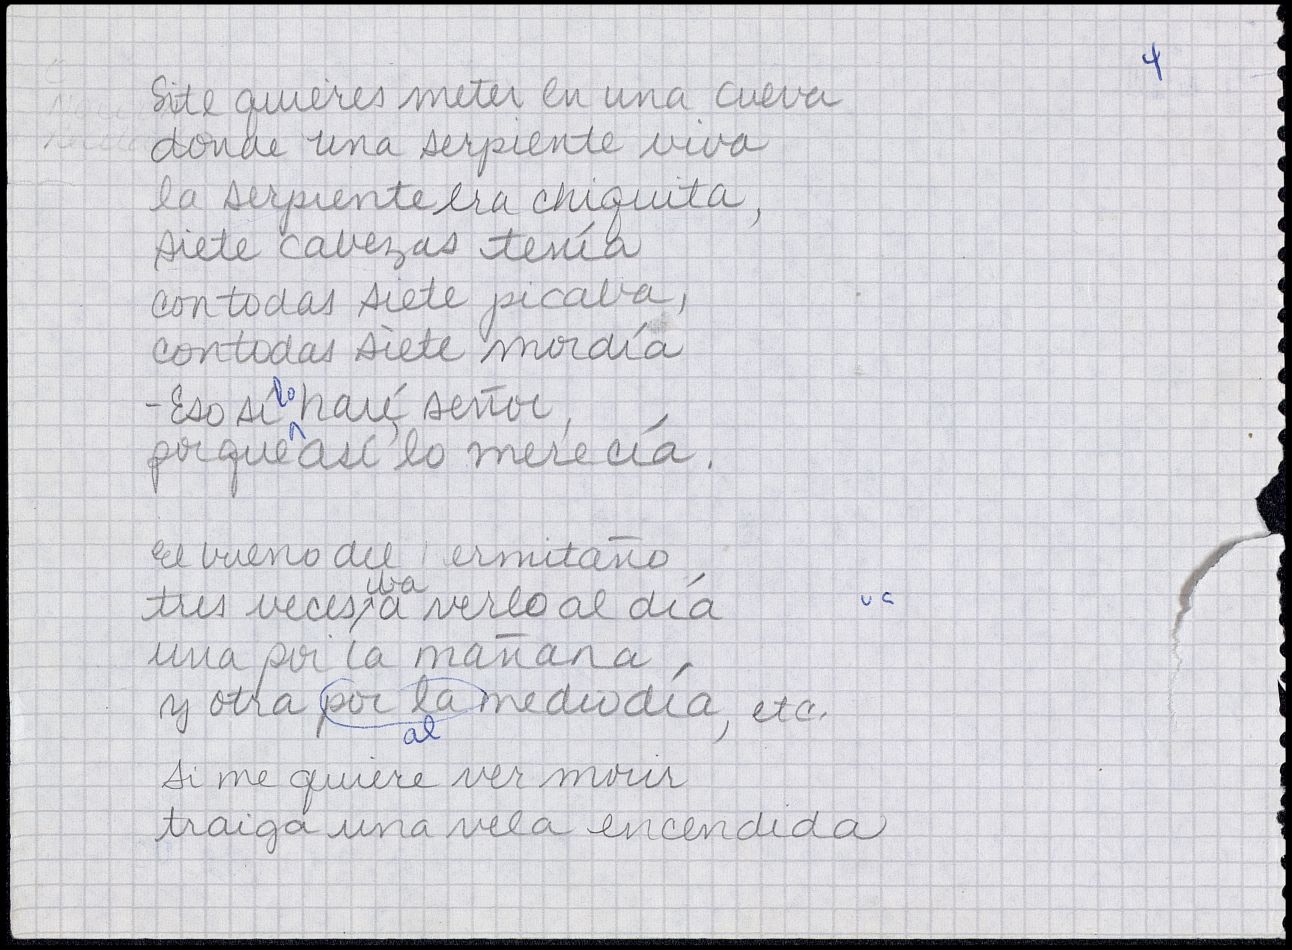 4
Si te quieres meter en una cueva
donde una serpiente viva
la serpiente era chiquita,
siete cabezas tenía
con todas siete picaba,
con todas siete mordía
- Eso sí lo haré, señor,
porque así lo merecía.
El bueno del ermitaño
tres veces iba a verlo al día
una por la mañana
y otra por la mediodía, etc.
al
si me quiere ver morir
traiga una vela encendida